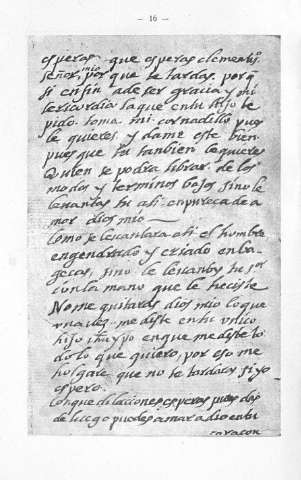 — 16 —
esperas que esperas clementis.
señor mio, por que te tardas, porq̃
si en fin a de ser gracia y mi
sericordia la que en tu hijo te
pido. toma mi cornadillo pues
le quieres, y dame este bien
pues que tu tambien le quieres
Quien se podra librar de los
modos y terminos bajos si no le
levantas tu a ti en pureza de a
mor dios mio
Como se levantara a ti el hombre
engendrado y criado en ba
geças, si no le levantas tu sor
con la mano que le heciste
No me quitaras dios mio lo que
una vez me diste en tu unico
hijo ihu xpo en que me diste to
do lo que quiero, por eso me
holgare que no te tardaras si yo
espero.
Con que dilaciones esperas pues des
de luego puedes amar a dios en tu
coraçon